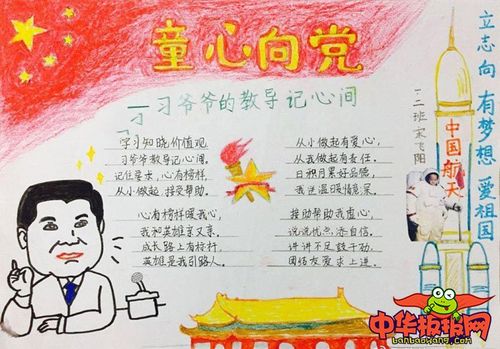 童心向党
习爷爷的教导记心间
学习知晓价值观,
习爷爷教导记心间,
记住要求,心有榜样,
从小做起,接受帮助。
心有榜样暖我心,
我和英雄亲又亲。
成长路上有标杆,
英雄是我引路人。
从小做起有爱心,
从我做起有责任,
日积月累好品德,
接助帮助我虚心,
说说优点添自信,
讲讲不足鼓干劲,
团结友爱求上进。
立志向 有梦想 爱祖国
二班宋飞阳
中国航天
中华板报网
banbaowang.com